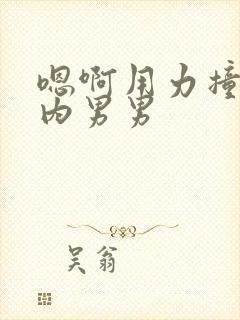 嗯啊用力撞
内男男
吴翁